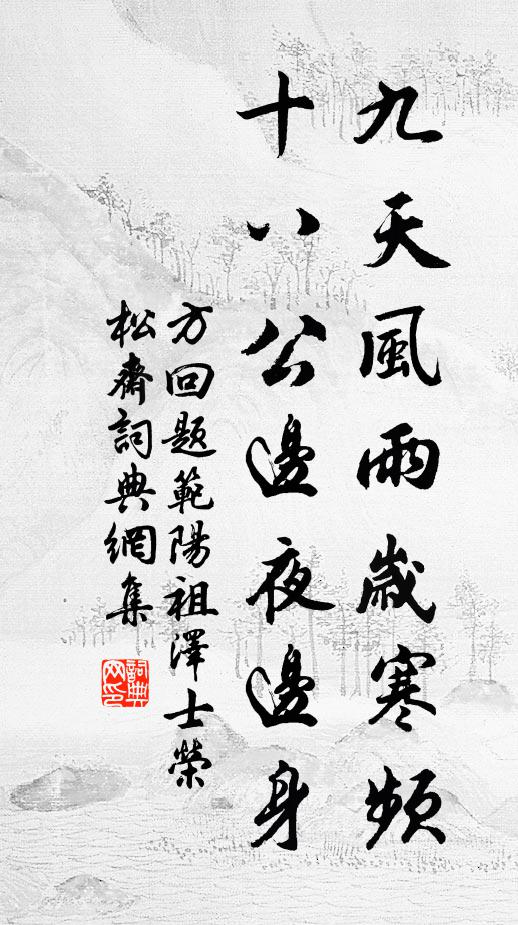 九天風雨歲寒頻
十八公邊夜邊身
方回題範陽祖澤士榮
松齋詞典網集
詞典网印